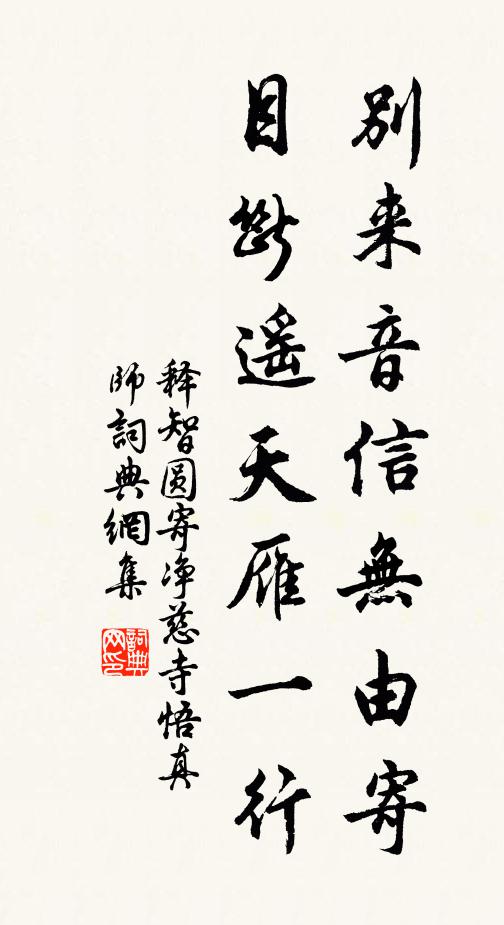 別来音信無由寄
目断遥天雁一行
释智圆寄净慈寺悟真
師詞典網集
詞典网印